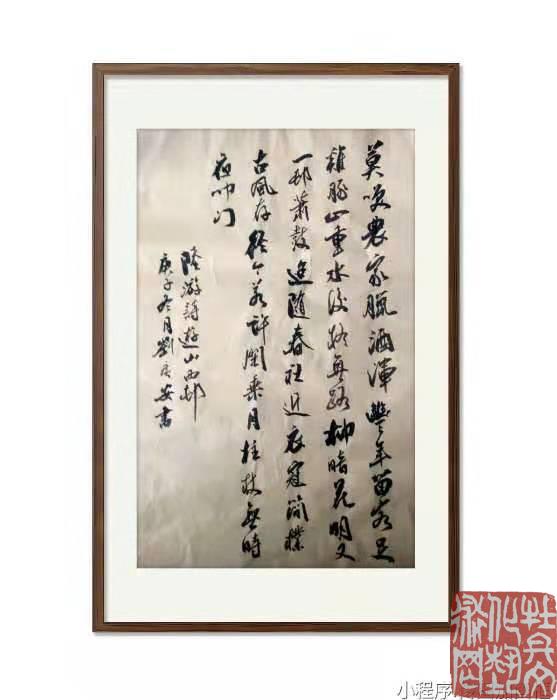 莫咲農家臘酒渾豐年留客足
雞豚山重水複疑無路柳暗花明又
一邨簫鼓追隨春社近衣冠簡樸
古風存從今若許閒乘月拄杖無時
夜叩门
陸游詩遊山西邨
庚子冬月劉安書
牡丹文
小程序